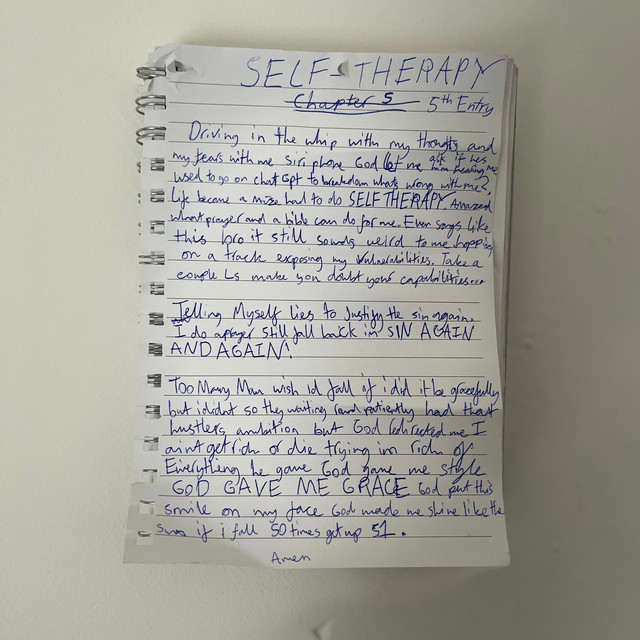 SELF-THERAPY
Chapter 5 5th Entry
Driving in the whip with my thoughts and
my fears with me siri phone God let me ask if hes hearing me
used to go on chat Gpt to breakdown whats wrong with me?.
Life became a maze had to do SELF THERAPY. Amazed
what prayer and a bible can do for me. Even songs like
this bro it still sounds weird to me hopping
on a track exposing my Vulnerabilities. Take a
couple Ls make you doubt your capabilities...
Telling Myself lies to Justify the sin again.
I do a prayer still fall back in SIN AGAIN
AND AGAIN!
Too Many Men wish Id fall if i did it be gracefully
but i didnt so they waiting patiently had that
hustlers ambition but God redirected me I
aint get rich or die trying im rich of
Everything he gave God gave me style
GOD GAVE ME GRACE God put this
smile on my face God made me shine like the
sun if i fall 50 times get up 51.
Amen